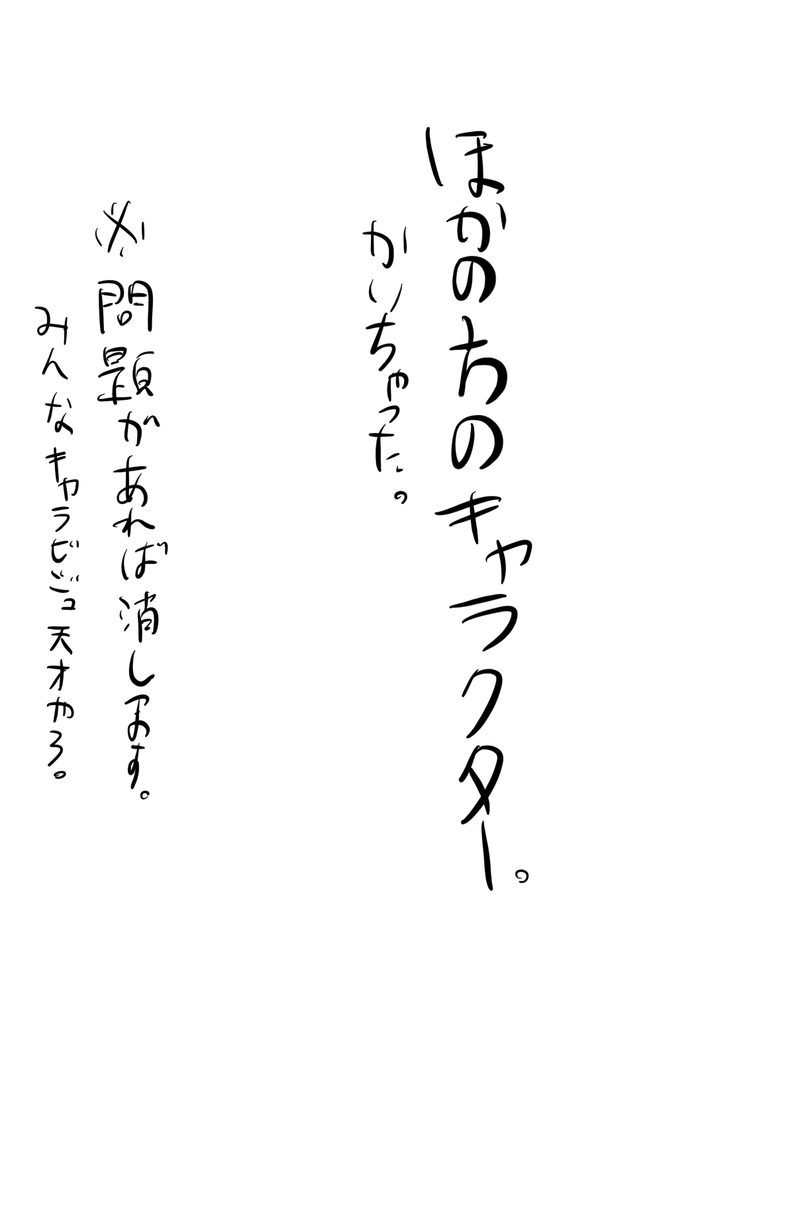 ほかの方のキャラクター。
かいちゃった。
※問題があれば消します。
みんなキャラビジュ天才やろ。